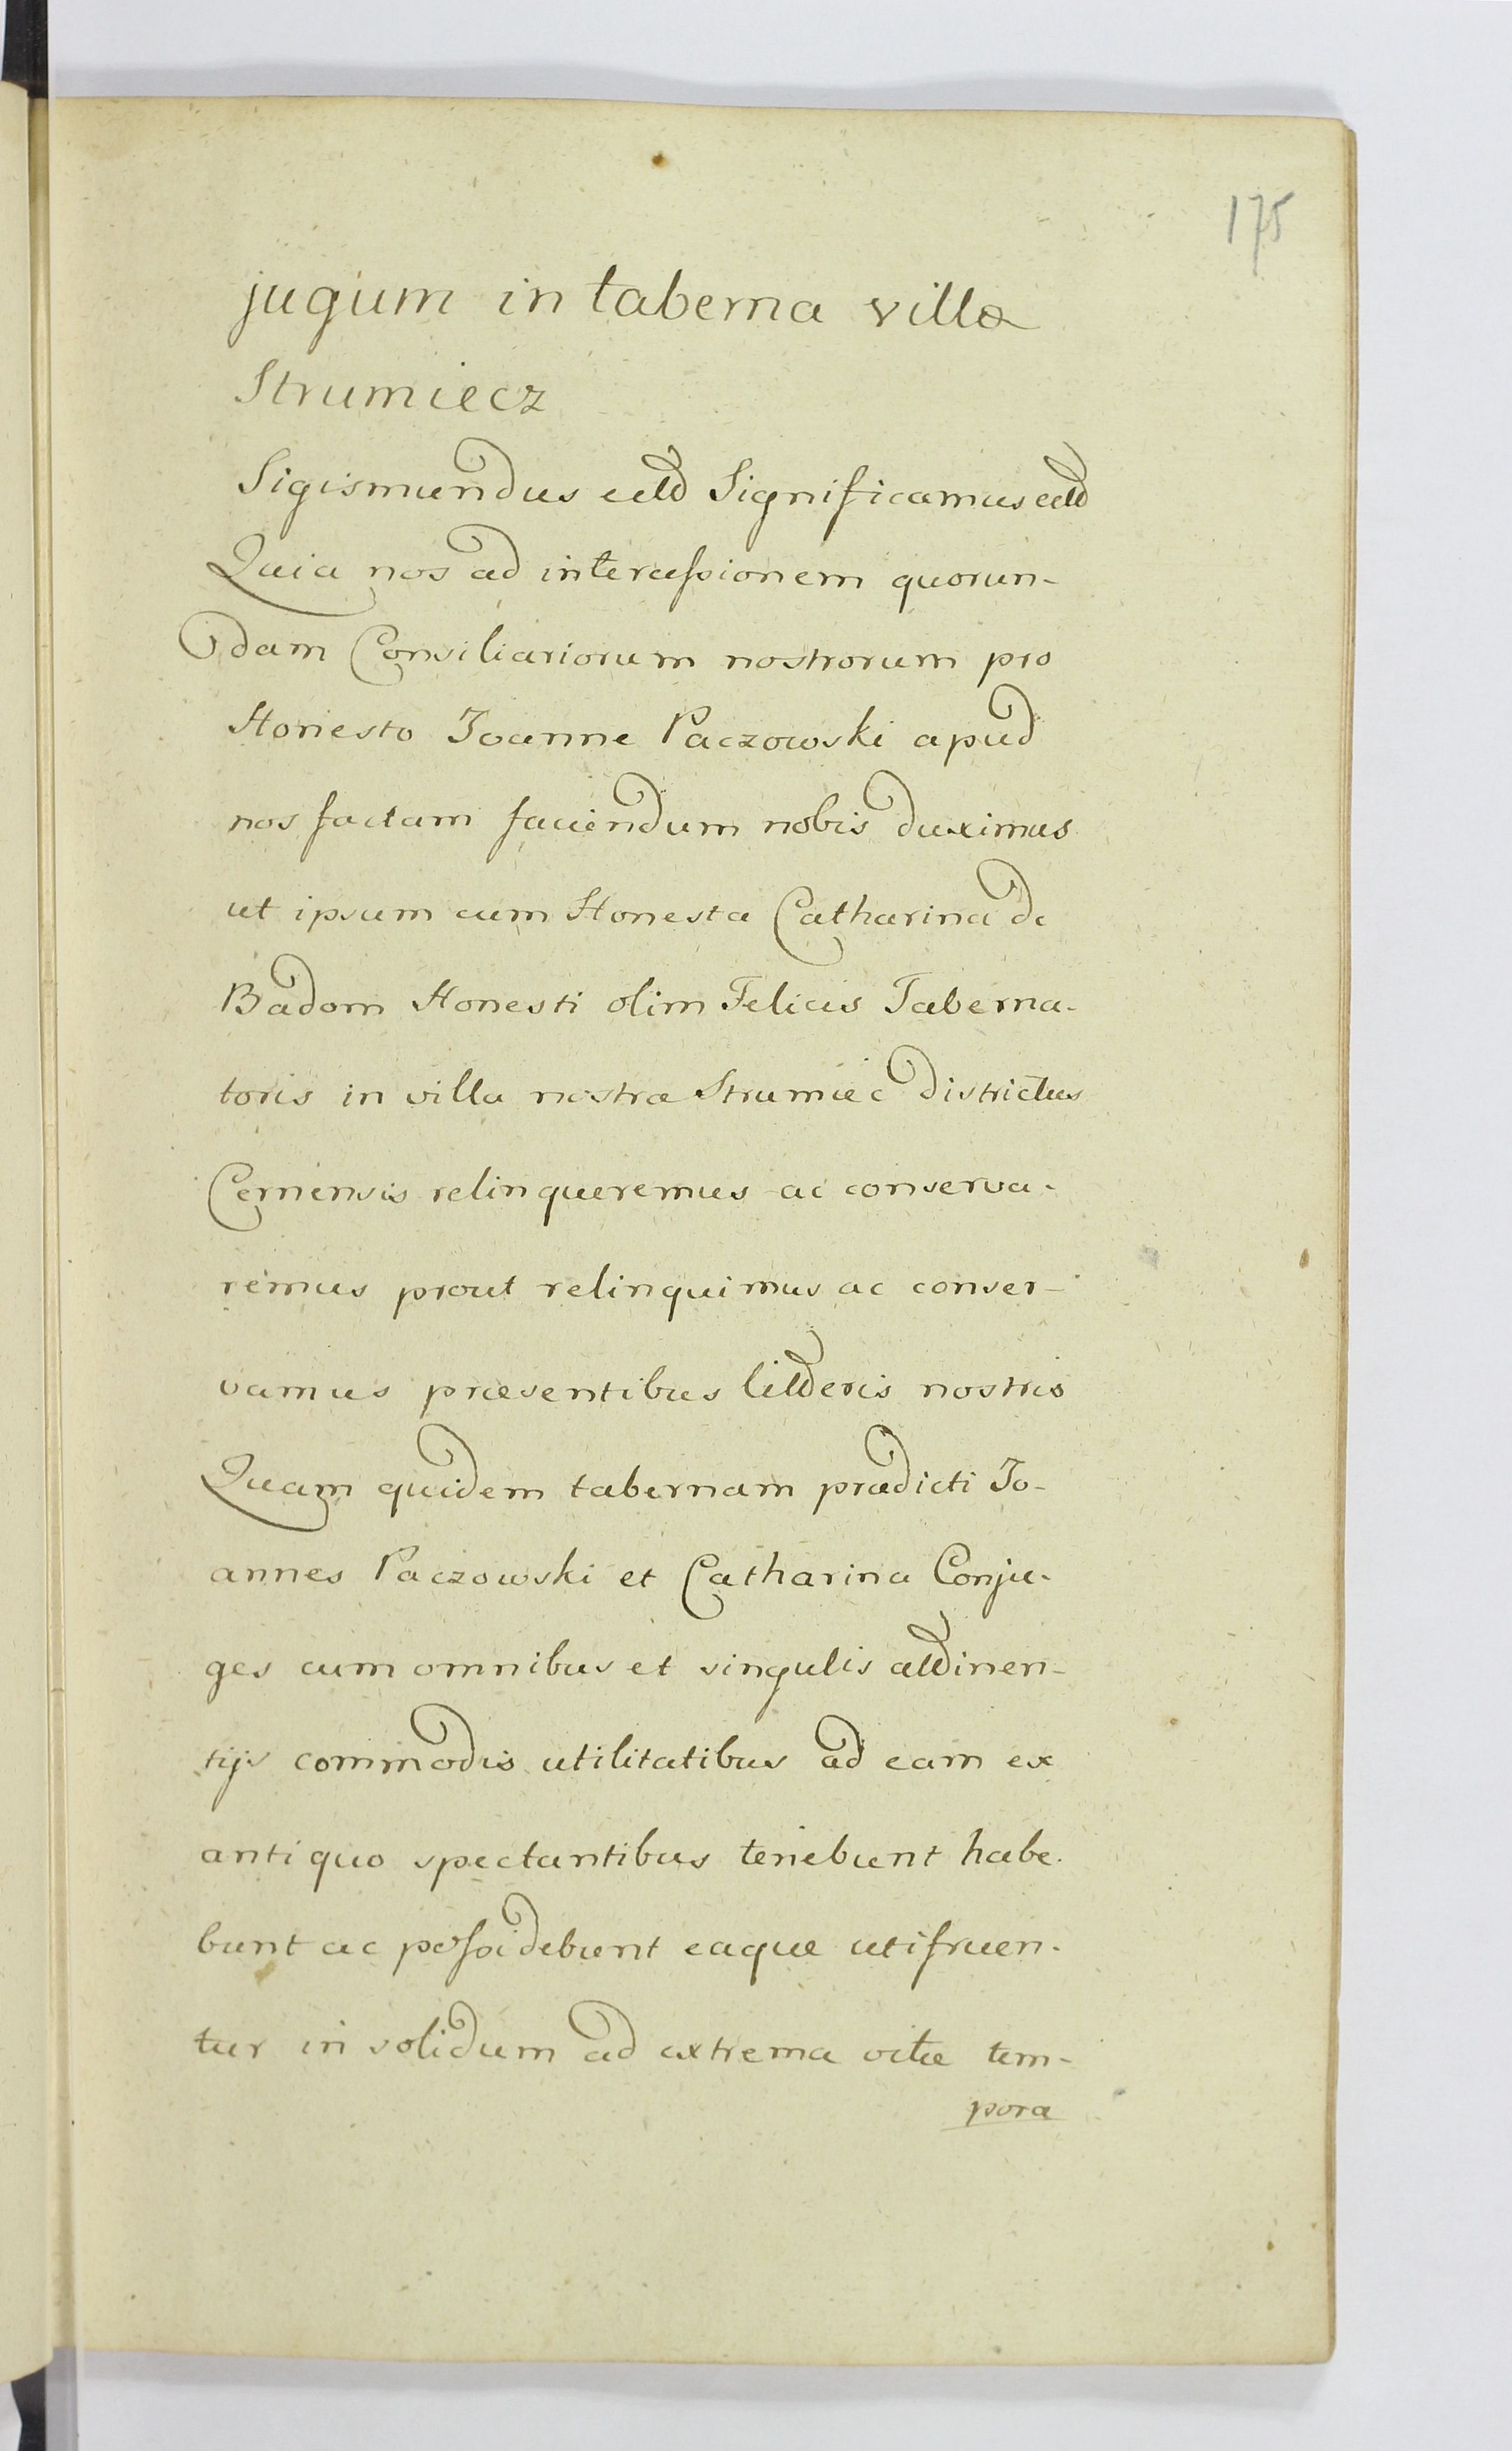 175
jugum in taberna villæ
Strumiecz
Sigismundus etctt Significamus ectt
Quia nos ad intercessionem quorun-
dam Consiliariorum nostrorum pro
Honesto Joanne Paczowski apud
nos factam faciendum nobis duximus
ut ipsum cum Honesta Catharina de
Badom Honesti olim Felicis Taberna-
toris in villa nostra Strumiec districtus
Cernensis relinqueremus ac conserva-
remus prout relinquimus ac conser-
vamus præsentibus litteris nostris
Quam quidem tabernam prædicti Jo-
annes Paczowski et Catharina Conju-
ges cum omnibus et singulis attinen-
tijs commodis utilitatibus ad eam ex
antiquo spectantibus tenebunt habe-
bunt ac possidebunt eaque utifruen-
tur in solidum ad extrema vitæ tem-
pora